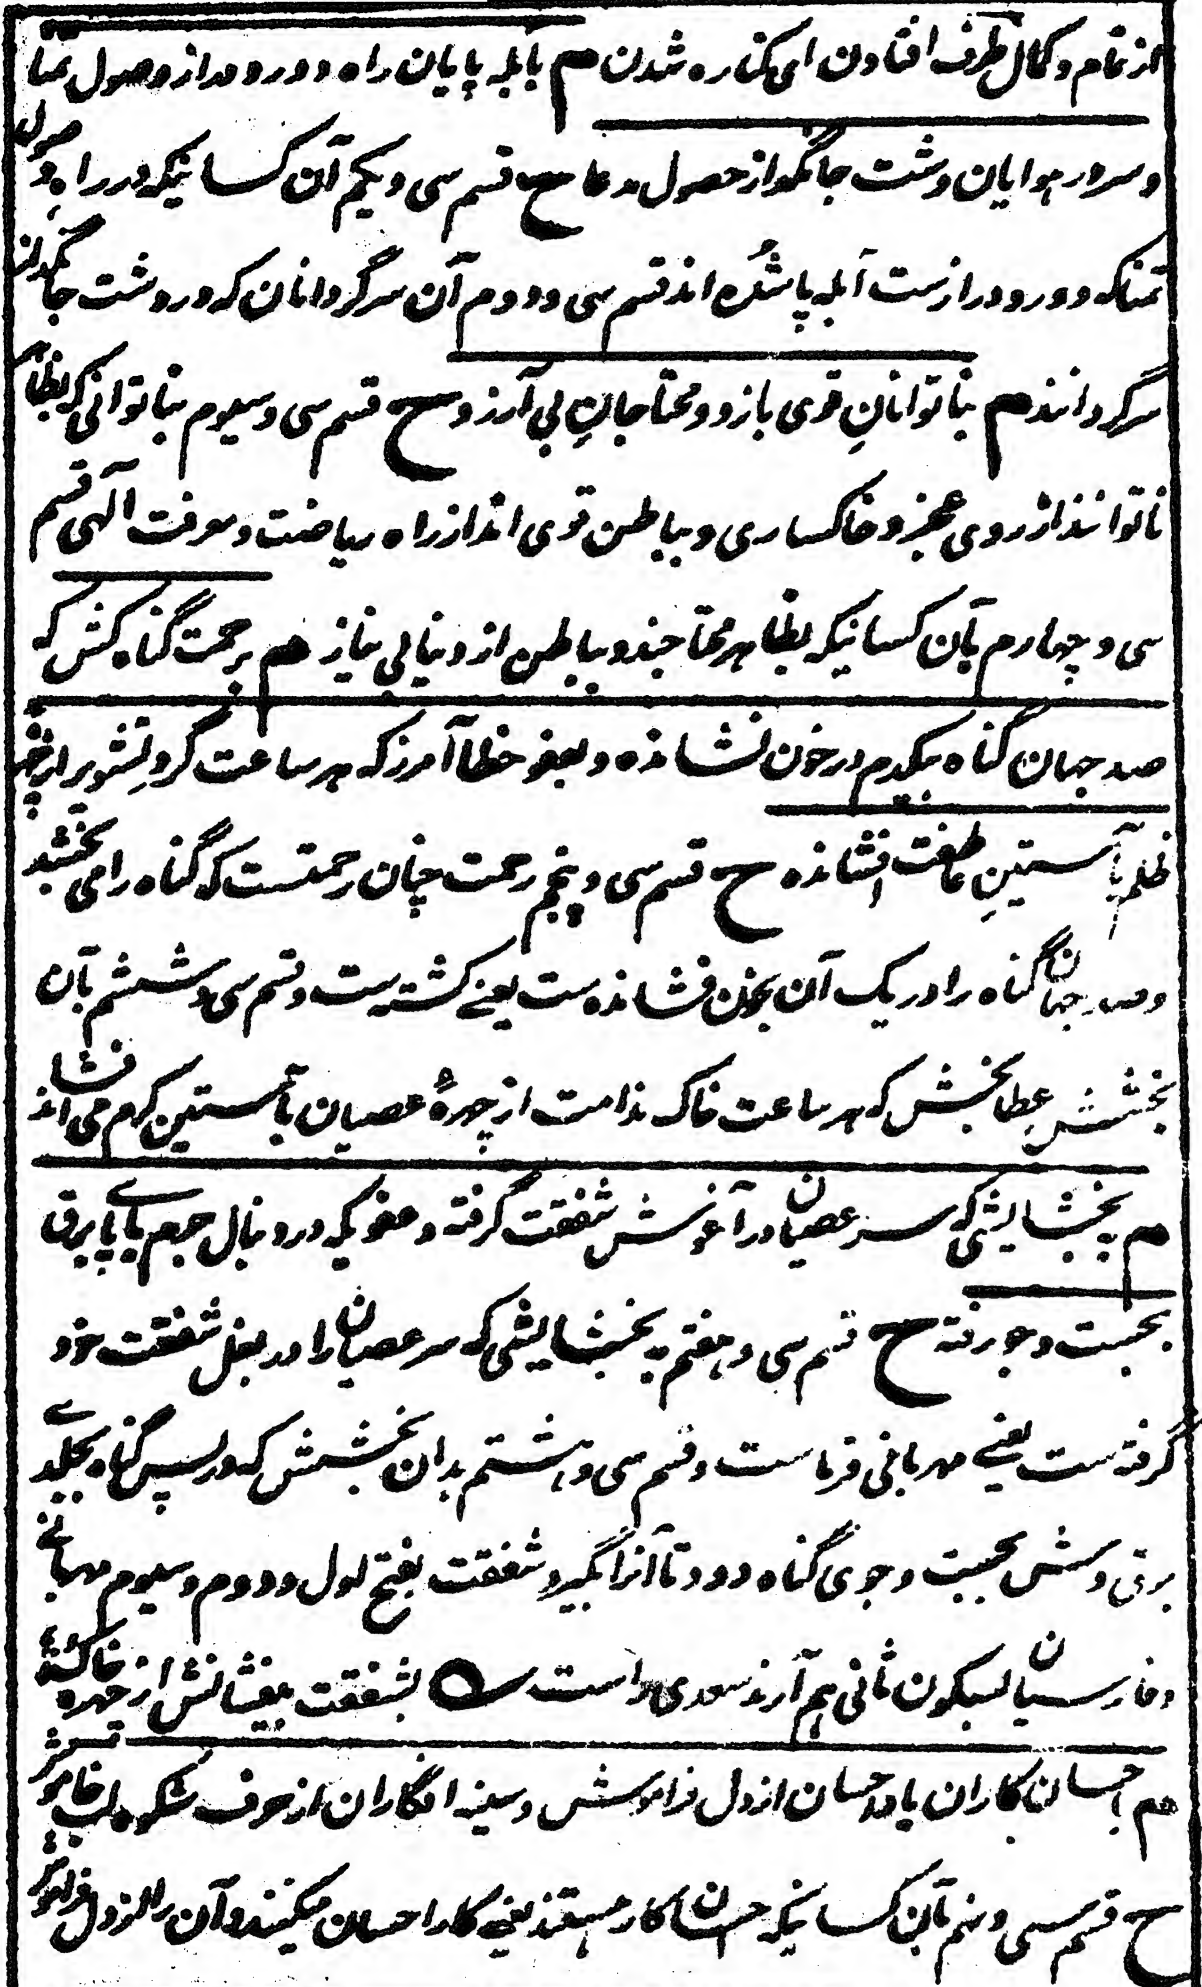 از تمام و کمال طرف افتادن ای کناره شدن م بآبله پایان راه دور و دراز وصول تمنا
و سرور هوایان دشت جانگداز حصول مدعا ح قسم سی و یکم آن کسانیکه در راه وصول
تمنا که دور و درازست آبله پا شده اند قسم سی و دوم آن سرگردانان که در دشت جانگداز
سرگردانند م بناتوانان قوی بازو و محتاجانِ بی آرزو ح قسم سی و سیوم بناتوانی که بظاهر
ناتوانند از روی عجز و خاکساری و بباطن قوی اند از راه ریاضت و معرفت الٓهی قسم
سی و چهارم بآن کسانیکه بظاهر محتاجند و بباطن از دنیا بی نیاز م برحمت گناه کش که
صد جهان گناه بیکدم در خون نشانده و بعفو خطا آمرز که هر ساعت گردِ تشویر از
ظلم بآستینِ عاطفت افشانده ح قسم سی و پنجم رحمت چنان رحمتست که گناه را می بخشد
و صد جهان گناه را در یک آن بخون فشانده ست یعنے کشته ست و قسم سی و ششم بآن
بخشش عطا بخش که هر ساعت خاک ندامت از چهرهٔ عصیان بآستین کرم می افشاند
م به بخشایشی که سر عصیان در آغوش شفقت گرفته و عفو یکه در دنبال جرم بپاے برق
بجست و جو رفته ح قسم سی و هفتم به بخشایشی که سر عصیان را در بغل شفقت خود
گرفته ست یعنے مهربانی فرماست و قسم سی و هشتم بدان بخشش که در پس گناه بجلدے
برق وش بجست و جوی گناه دود تا آنرا بگیرد شفقت بفتح اول و دوم و سیوم مهربانے
و فارسیان بسکون ثانی هم آرند سعدی راست ے بشفقت بیفشانش از چهره خاک
م باحسان کاران یاد احسان از دل فراموش و سینه افگاران از حرف شکوه لب خاموش
ح قسم سی و نهم بآن کسانیکه احسان کار هستند یعنے کار احسان میکنند و آن را از دل فراموش